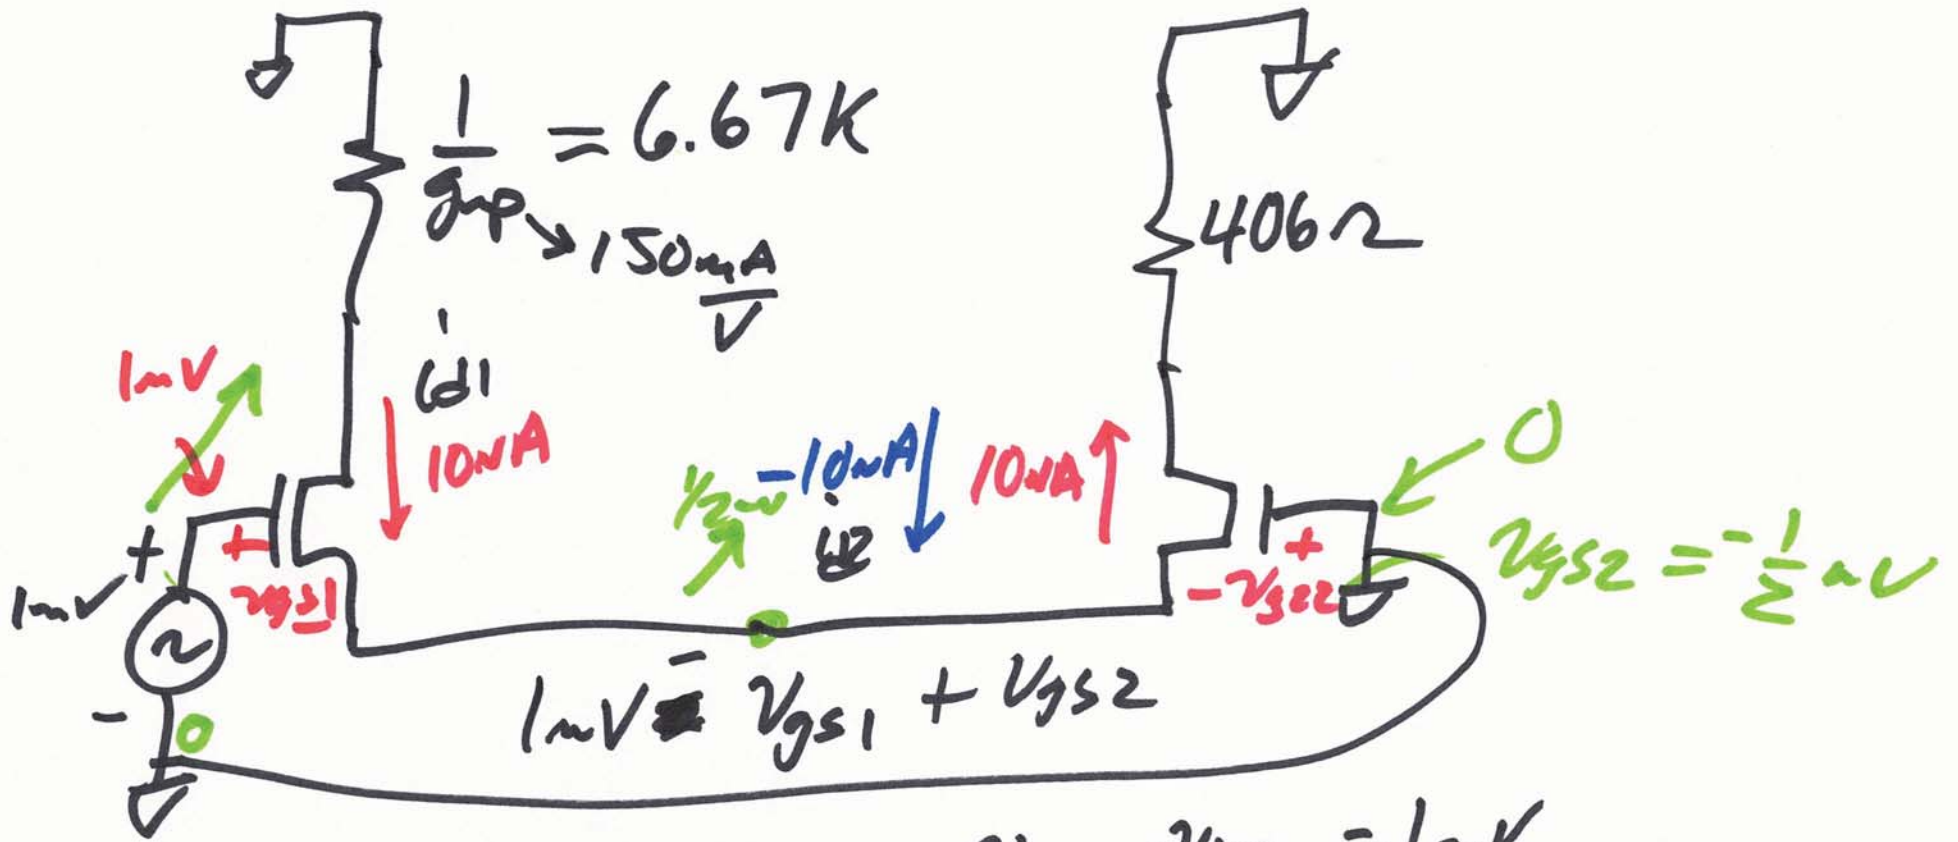 1/gmp = 6.67K
150 mA/V
406Ω
1mV
id1
10nA
1/2mV
-10nA
id2
10nA
0
+
1mV
+
vgs1
+
-vgs2
vgs2 = -1/2 mV
-
0
1mV = vgs1 + vgs2